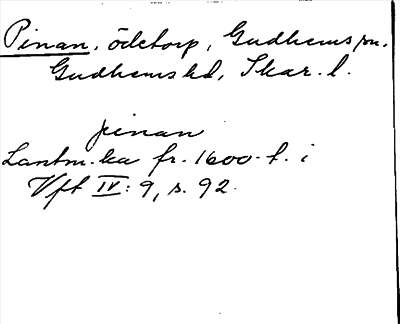 Pinan, ödetorp, Gudhems sn.
Gudhems hd, Skar. l.
pinan
Lantm. ka fr. 1600-t. i
Vft IV: 9, s. 92.